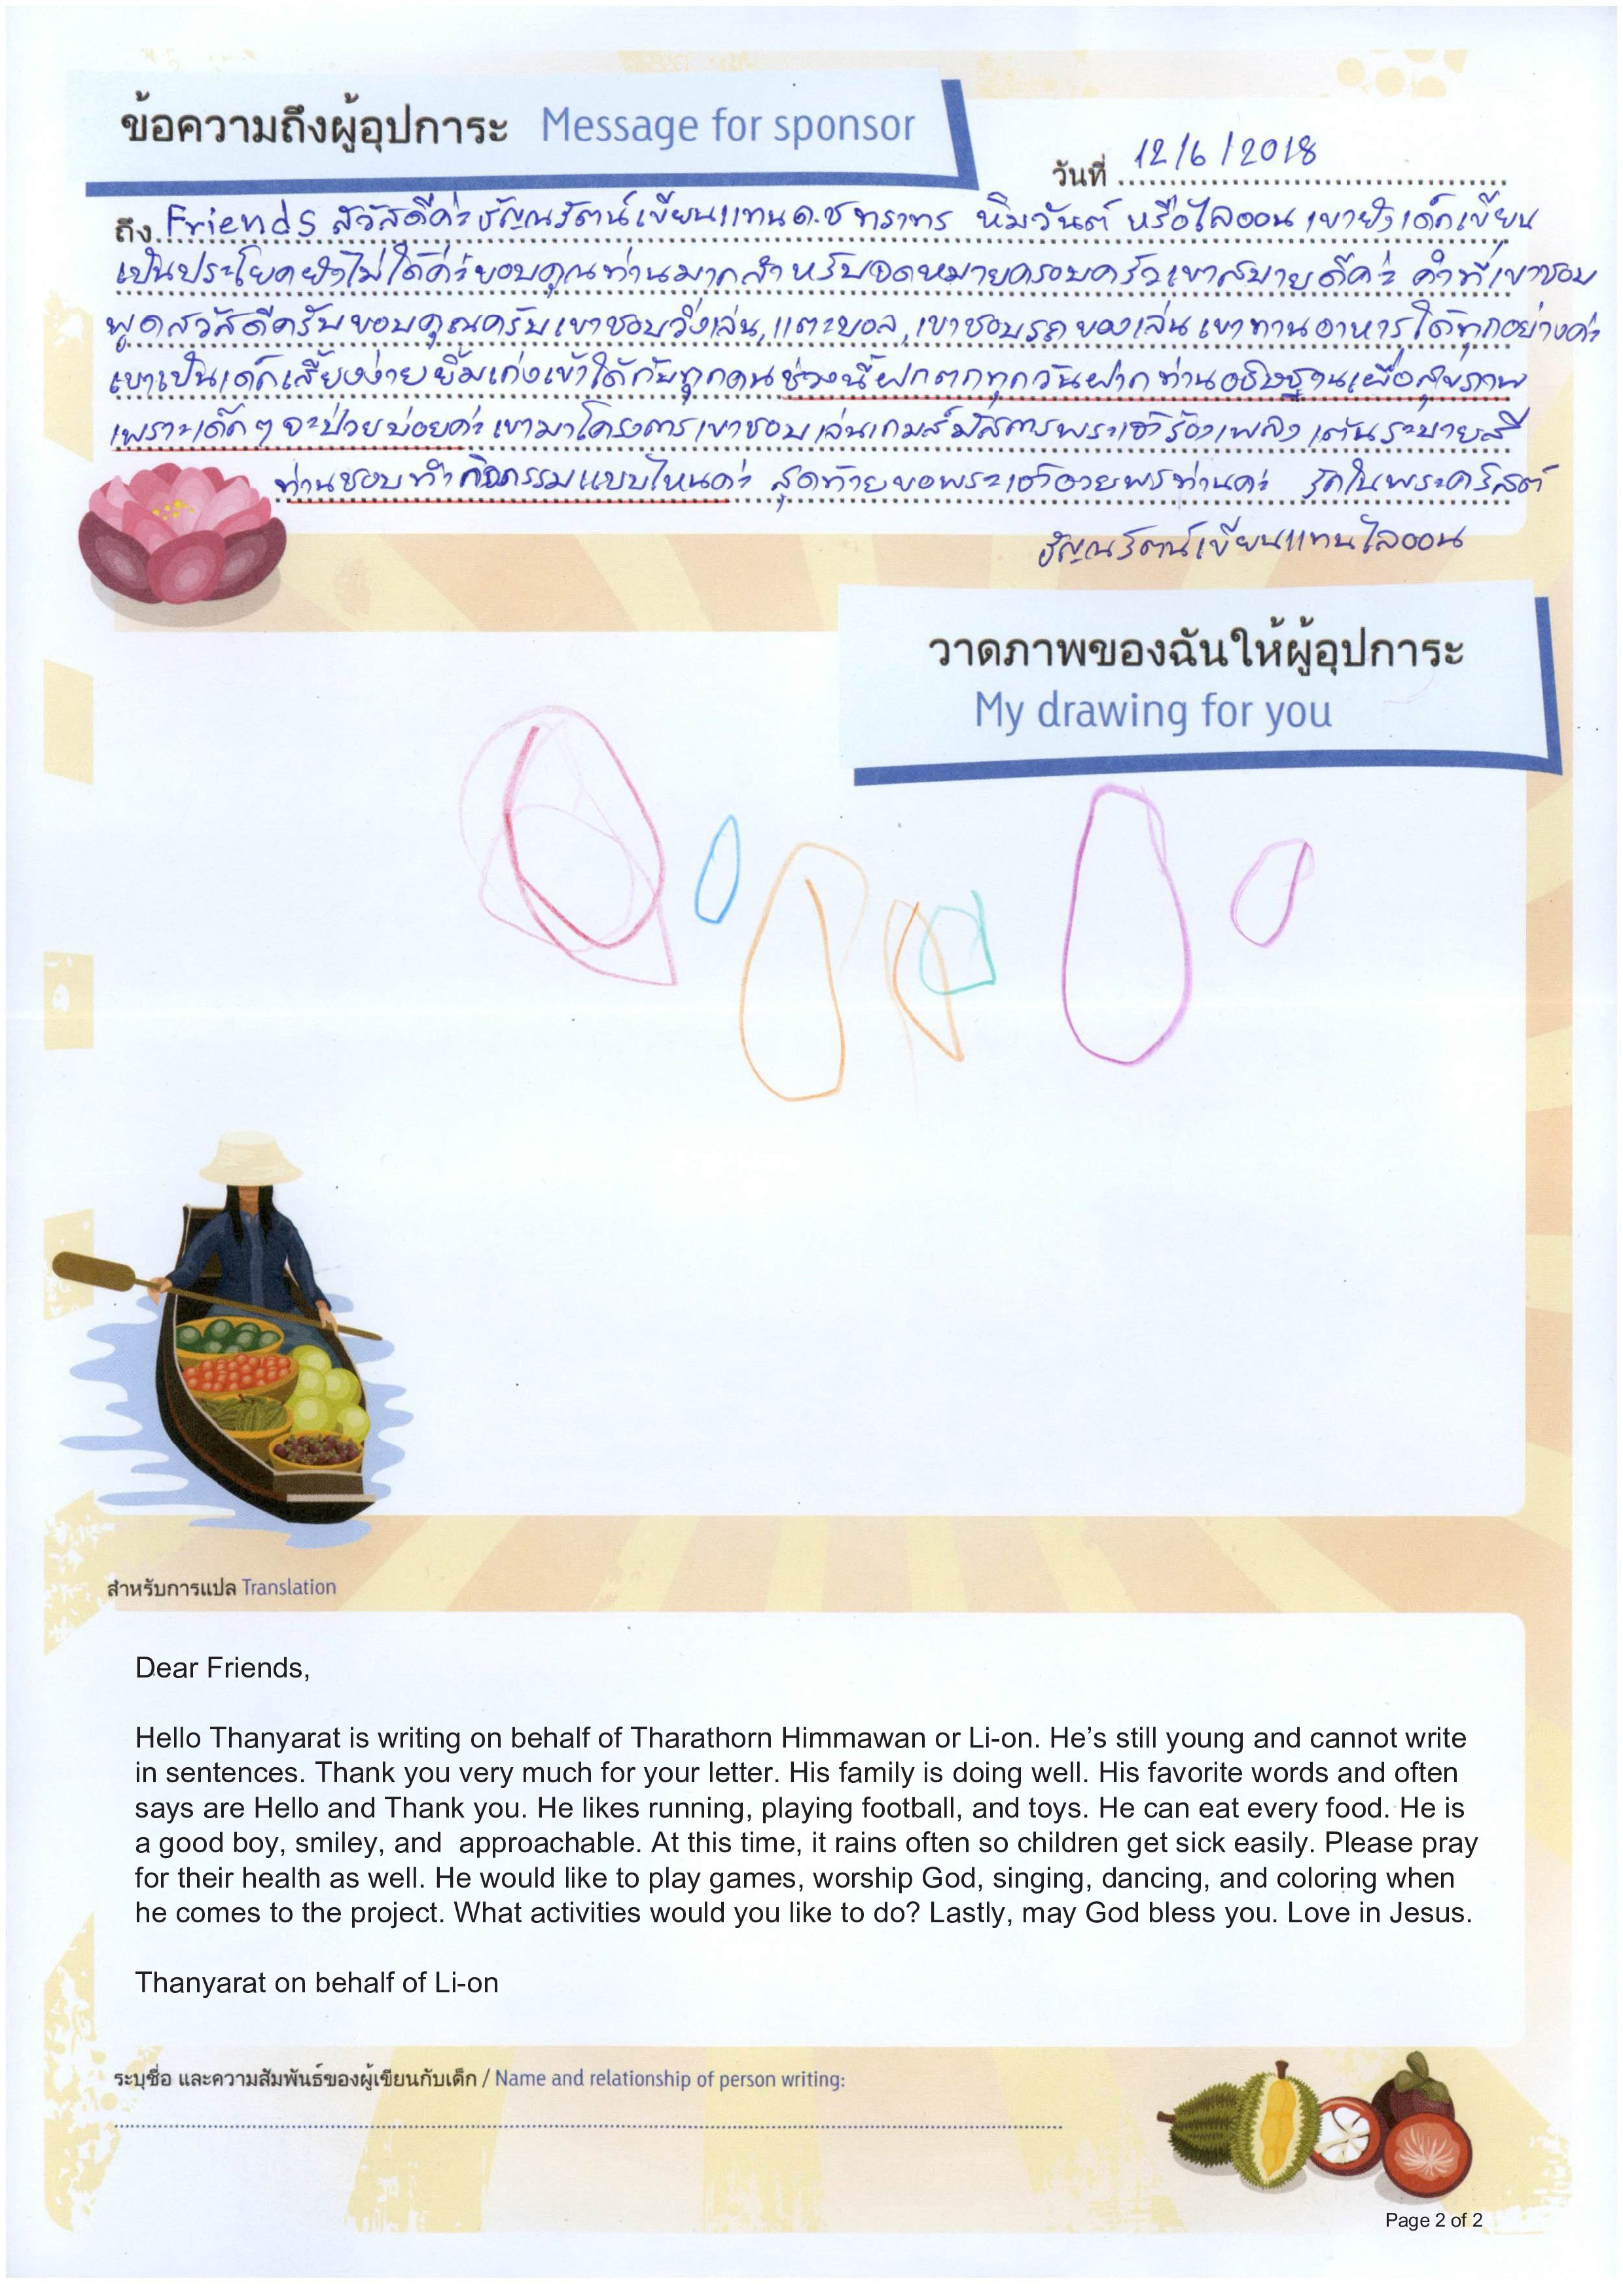 ข้อความถึงผู้อุปการะ Message for sponsor
วันที่ 12/6/2018
ถึง Friends สวัสดีค่ะ ธัญณรัตน์เขียนแทนด.ช ทราทร หิมวันต์ หรือไลออน เขายังเด็กเขียน
เป็นประโยคยังไม่ได้ค่ะขอบคุณท่านมากสำหรับจดหมายครอบครัวเขาสบายดีค่ะ คำที่เขาชอบ
พูดสวัสดีครับขอบคุณครับเขาชอบวิ่งเล่น,เตะบอล,เขาชอบรถของเล่น เขาทานอาหารได้ทุกอย่างค่ะ
เขาเป็นเด็กเลี้ยงง่ายยิ้มเก่งเข้าได้กับทุกคนช่วงนี้ฝนตกทุกวันฝากท่านอธิษฐานเผื่อสุขภาพ
เพราะเด็กๆ จะป่วยบ่อยค่ะ เขามาโครงการเขาชอบเล่นเกมส์นมัสการพระเจ้าร้องเพลง เต้นระบายสี
ท่านชอบทำกิจกรรมแบบไหนคะ สุดท้ายขอพระเจ้าอวยพรท่านค่ะ รักในพระคริสต์
ธัญณรัตน์เขียนแทนไลออน
วาดภาพของฉันให้ผู้อุปการะ
My drawing for you
สำหรับการแปล Translation
Dear Friends,
Hello Thanyarat is writing on behalf of Tharathorn Himmawan or Li-on. He’s still young and cannot write
in sentences. Thank you very much for your letter. His family is doing well. His favorite words and often
says are Hello and Thank you. He likes running, playing football, and toys. He can eat every food. He is
a good boy, smiley, and  approachable. At this time, it rains often so children get sick easily. Please pray
for their health as well. He would like to play games, worship God, singing, dancing, and coloring when
he comes to the project. What activities would you like to do? Lastly, may God bless you. Love in Jesus.
Thanyarat on behalf of Li-on
ระบุชื่อ และความสัมพันธ์ของผู้เขียนกับเด็ก / Name and relationship of person writing:
Page 2 of 2